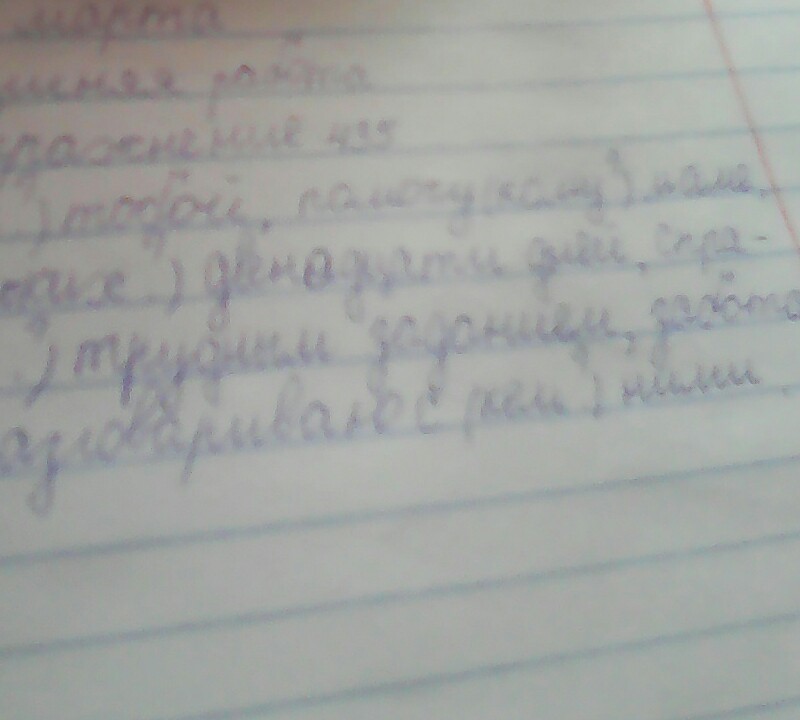 марта
шняя работа
ражнение 495
) тобой, помогу (кому?) маме,
ких ) двенадцати дней, спра-
) трудным заданием, забота
азговариваю с (кем ) ними